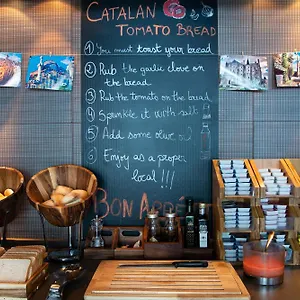 CATALAN
TOMATO BREAD
1 You must toast your BREAD
2 RUB the garlic clove on
the bread
3 RUB the tomato on the bread
4 Sprinkle it with salt
5 ADD some olive oil
6 Enjoy as a proper
local !!!
BON